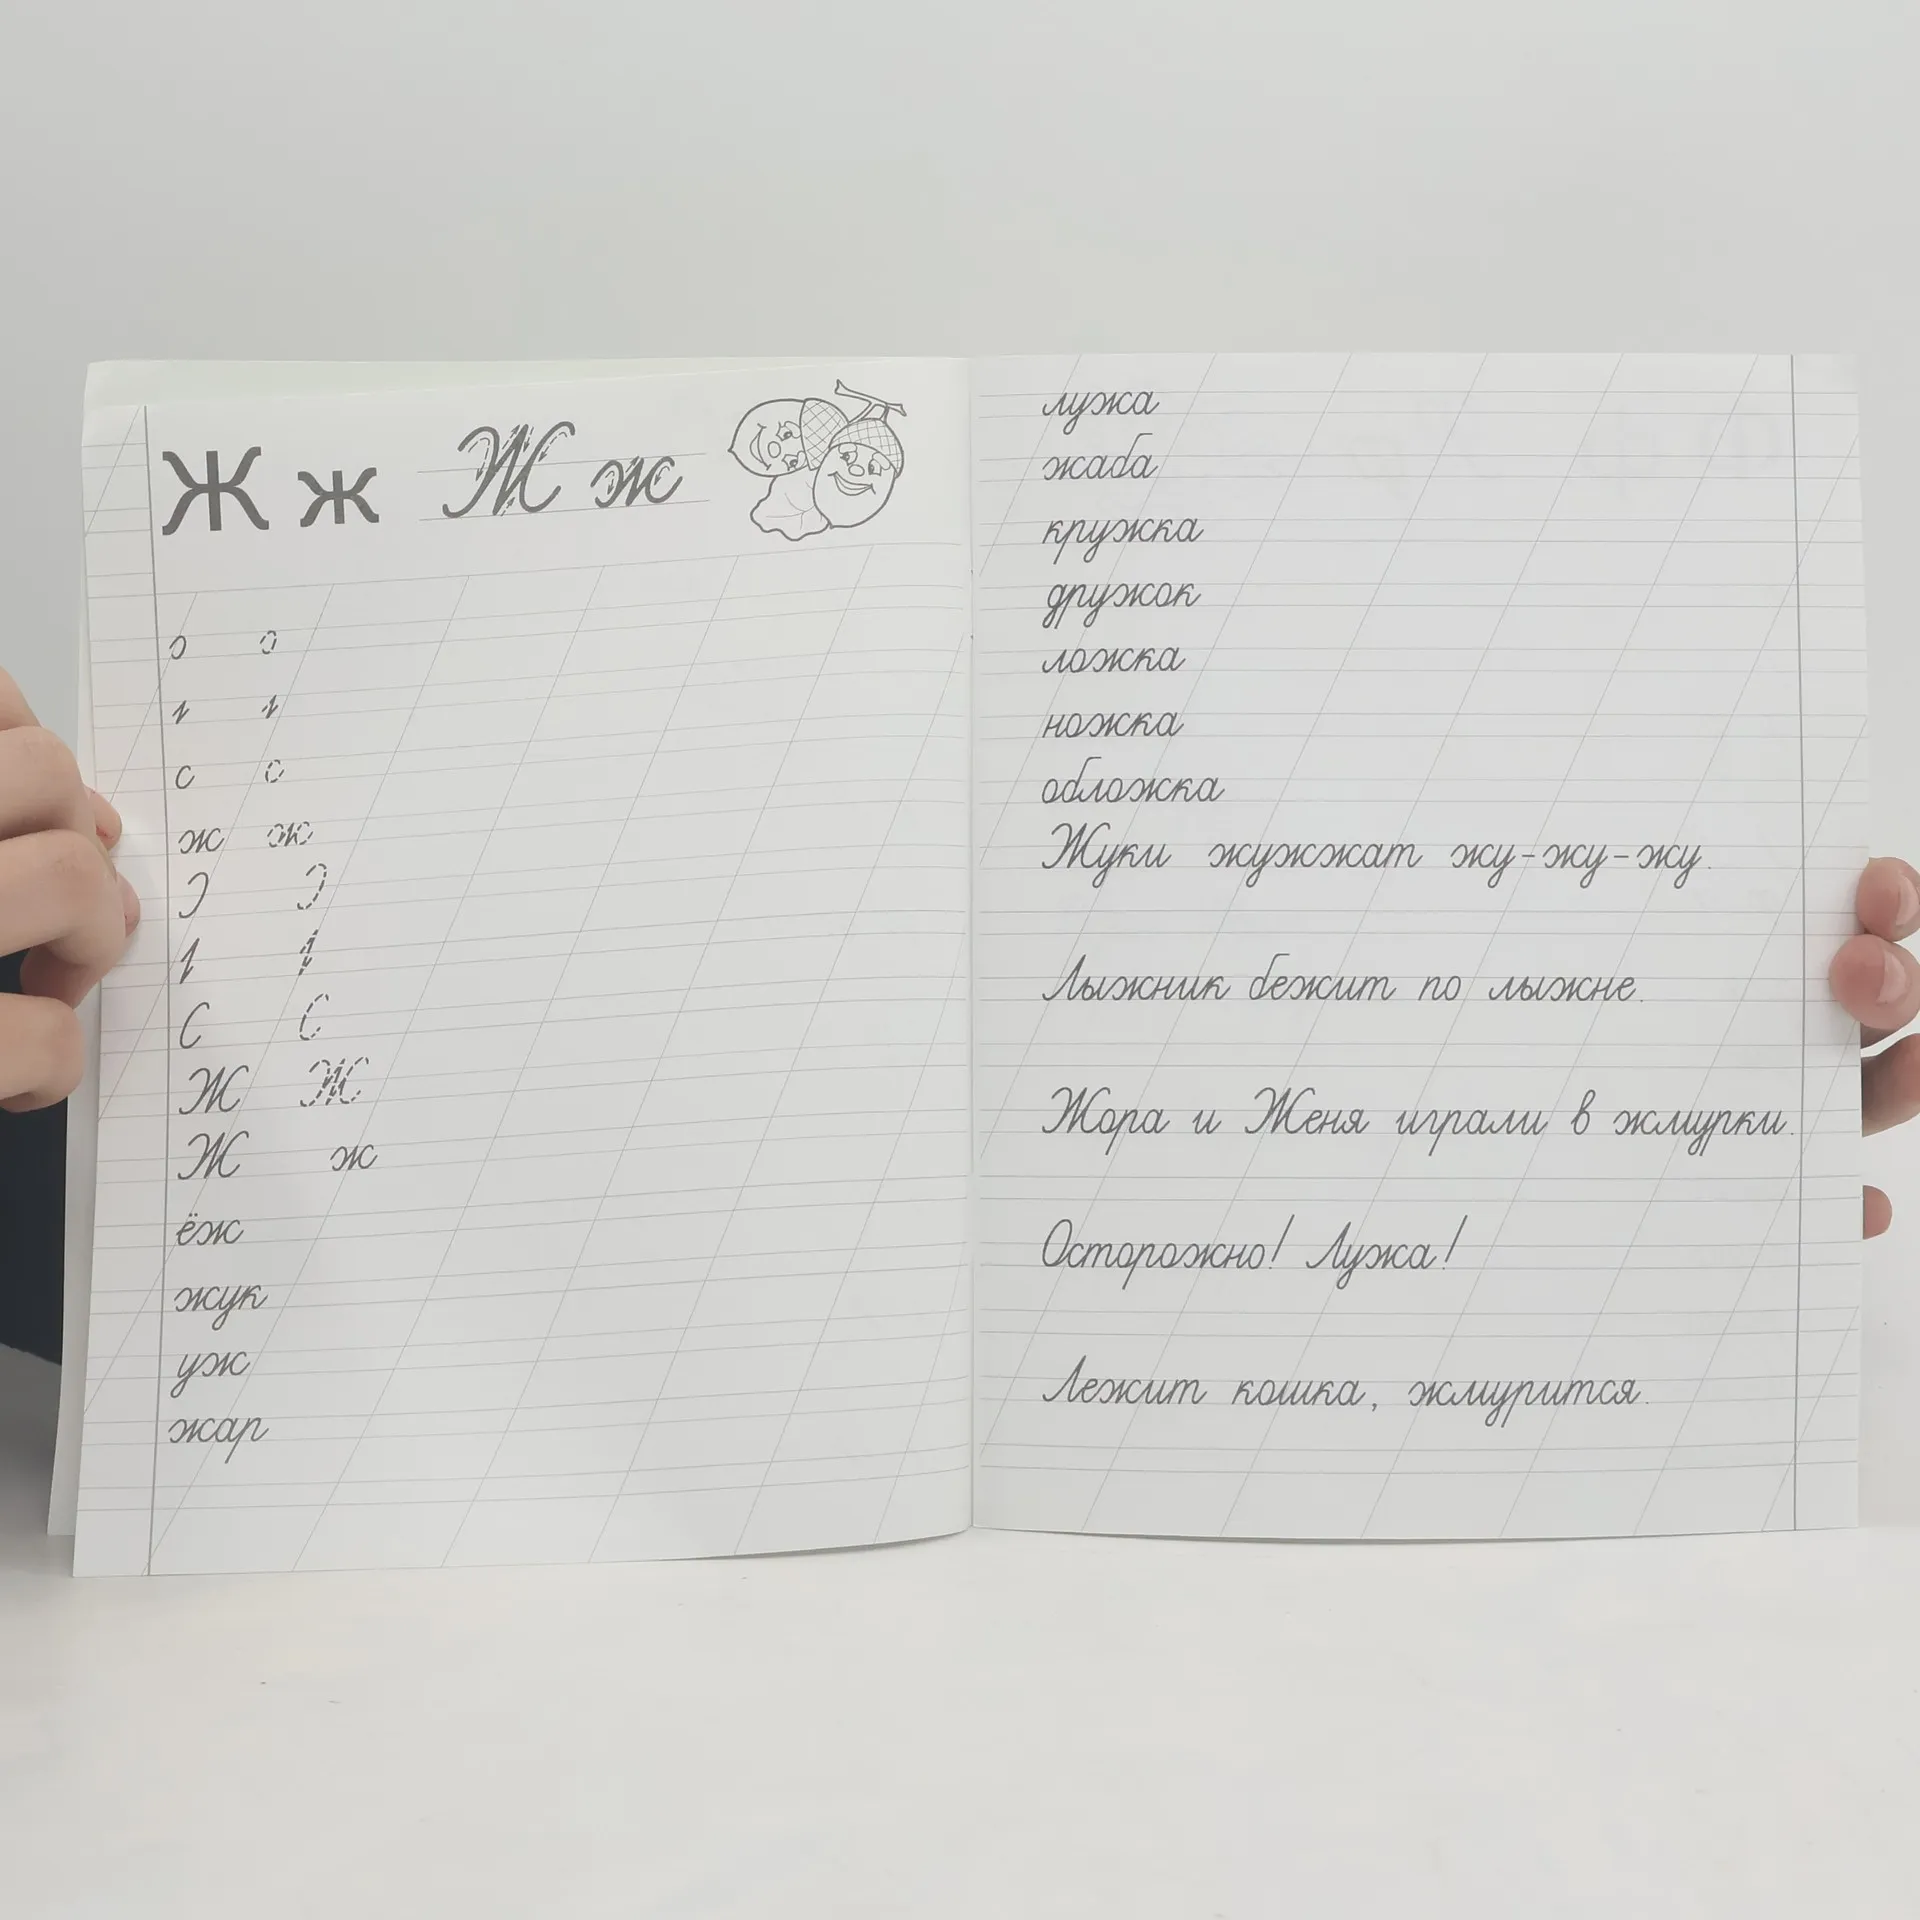 Ж ж Ж ж
ж ж
Ж Ж
Ж ж
ёж
жук
уж
жар
лужа
жаба
кружка
дружок
ложка
ножка
обложка
Жуки жужжат жу-жу-жу.
Лыжник бежит по лыжне.
Жора и Женя играли в жмурки.
Осторожно! Лужа!
Лежит кошка, жмурится.